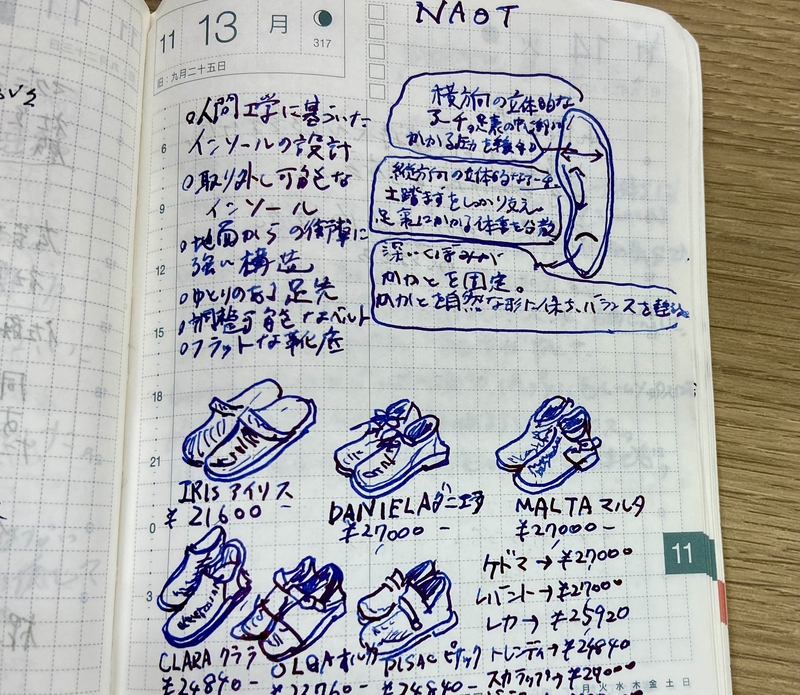 NAOT
11 13 月
317
旧:九月二十五日
○人間工学に基づいた
インソールの設計
○取り外し可能な
インソール
○地面からの衝撃に
強い構造
○ゆとりのある足先
○調整可能なベルト
○フラットな靴底
横方向の立体的な
アーチ。足裏の中
かかる圧力を
縦方向の立体的なアーチ
土踏まずをしっかり支え、
足裏にかかる体重を分散
深いくぼみが
かかとを固定。
かかとを自然な形に保ち、バランスを
6
9
12
15
18
21
0
3
IRIS アイリス
¥21600-
DANIELA ダニエラ
¥27000-
MALTA マルタ
¥27000-
ケドマ→¥27000
レバント→¥27000
レカ→¥25920
トレンディ→¥24840
スカラップ→¥27000
CLARA クララ
¥24840-
OLGA オルガ
¥22760-
ピザック
¥24840-
11
月 火 水 木 金 土 日